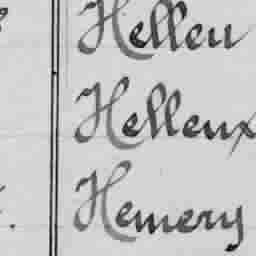 Helleu
Helleux
Hemery